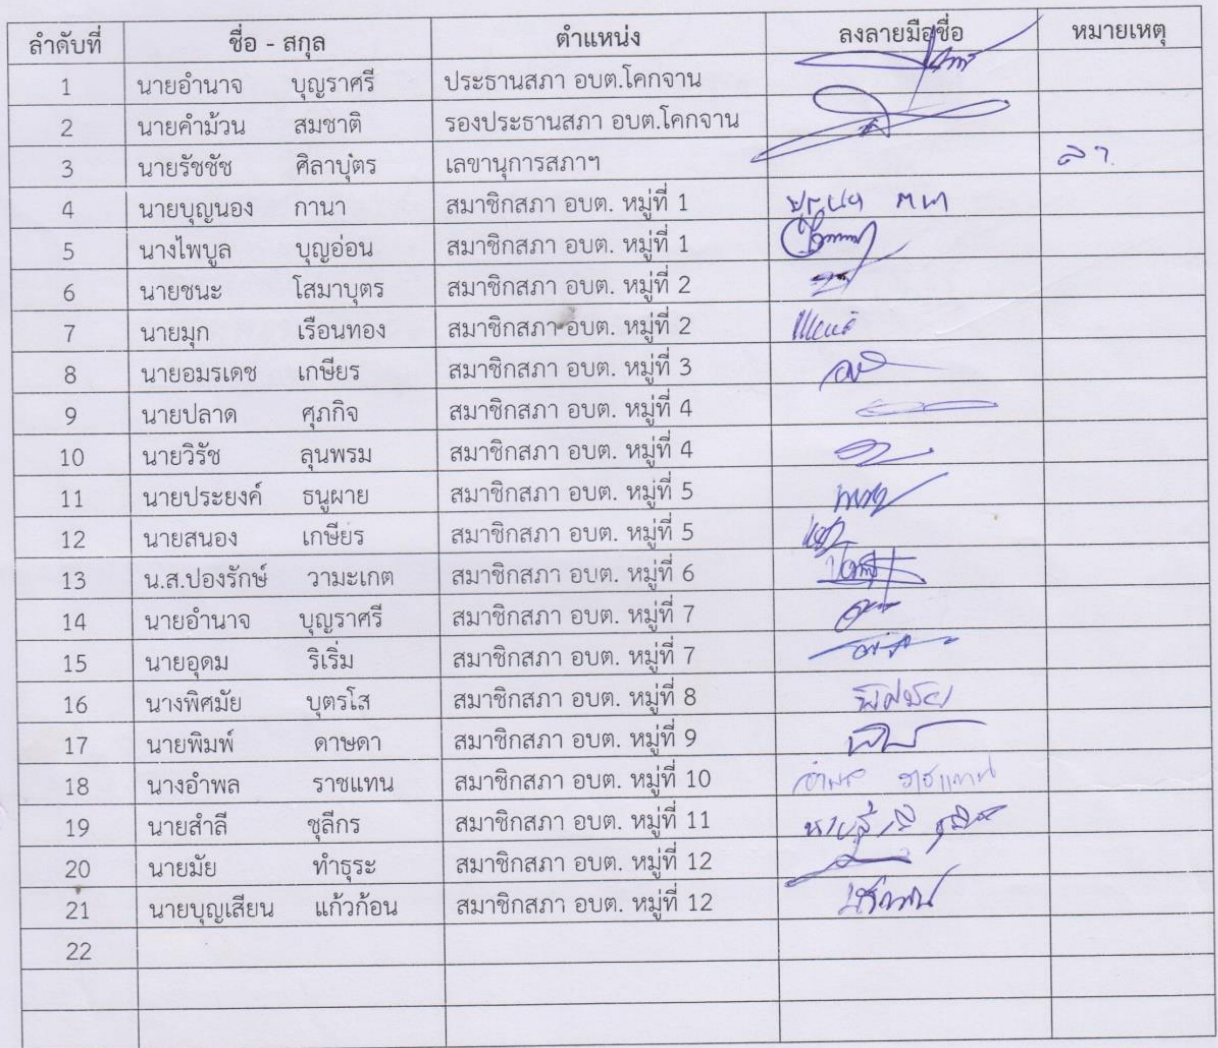 ลำดับที่ ชื่อ - สกุล ตำแหน่ง ลงลายมือชื่อ หมายเหตุ
1 นายอำนาจ บุญราศรี ประธานสภา อบต.โคกจาน
2 นายคำม้วน สมชาติ รองประธานสภา อบต.โคกจาน
3 นายรัชชัช ศิลาบุตร เลขานุการสภาฯ ลา
4 นายบุญนอง กานา สมาชิกสภา อบต. หมู่ที่ 1
5 นางไพบูล บุญอ่อน สมาชิกสภา อบต. หมู่ที่ 1
6 นายชนะ โสมาบุตร สมาชิกสภา อบต. หมู่ที่ 2
7 นายมุก เรือนทอง สมาชิกสภา อบต. หมู่ที่ 2
8 นายอมรเดช เกษียร สมาชิกสภา อบต. หมู่ที่ 3
9 นายปลาด ศุภกิจ สมาชิกสภา อบต. หมู่ที่ 4
10 นายวิรัช ลุนพรม สมาชิกสภา อบต. หมู่ที่ 4
11 นายประยงค์ ธนูผาย สมาชิกสภา อบต. หมู่ที่ 5
12 นายสนอง เกษียร สมาชิกสภา อบต. หมู่ที่ 5
13 น.ส.ปองรักษ์ วามะเกต สมาชิกสภา อบต. หมู่ที่ 6
14 นายอำนาจ บุญราศรี สมาชิกสภา อบต. หมู่ที่ 7
15 นายอุดม ริเริ่ม สมาชิกสภา อบต. หมู่ที่ 7
16 นางพิศมัย บุตรโส สมาชิกสภา อบต. หมู่ที่ 8 พิศมัย
17 นายพิมพ์ ดาษดา สมาชิกสภา อบต. หมู่ที่ 9
18 นางอำพล ราชแทน สมาชิกสภา อบต. หมู่ที่ 10 อำพล ราชแทน
19 นายสำลี ชุลีกร สมาชิกสภา อบต. หมู่ที่ 11
20 นายมัย ทำธุระ สมาชิกสภา อบต. หมู่ที่ 12
21 นายบุญเสียน แก้วก้อน สมาชิกสภา อบต. หมู่ที่ 12
22